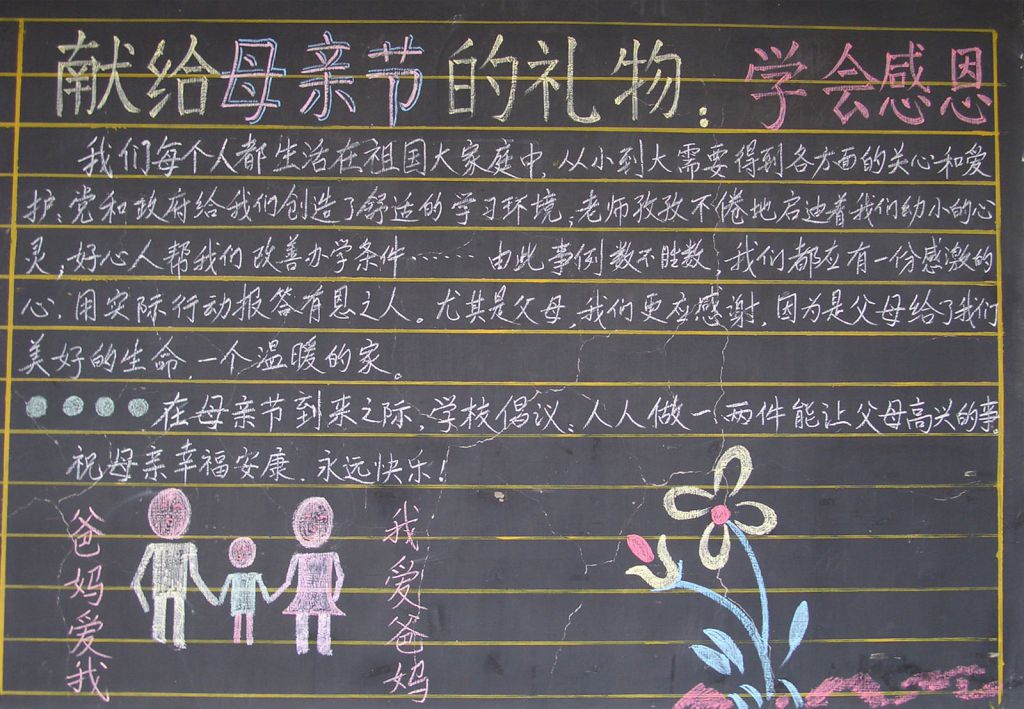 献给母亲节的礼物：学会感恩
我们每个人都生活在祖国大家庭中，从小到大需要得到各方面的关心和爱
护、党和政府给我们创造了舒适的学习环境，老师孜孜不倦地启迪着我们幼小的心
灵，好心人帮我们改善办学条件……由此事例数不胜数，我们都应有一份感激的
心，用实际行动报答有恩之人。尤其是父母，我们更应感谢，因为是父母给了我们
美好的生命，一个温暖的家。
在母亲节到来之际，学校倡议：人人做一两件能让父母高兴的事。
祝母亲幸福安康，永远快乐！
爸妈爱我
我爱爸妈